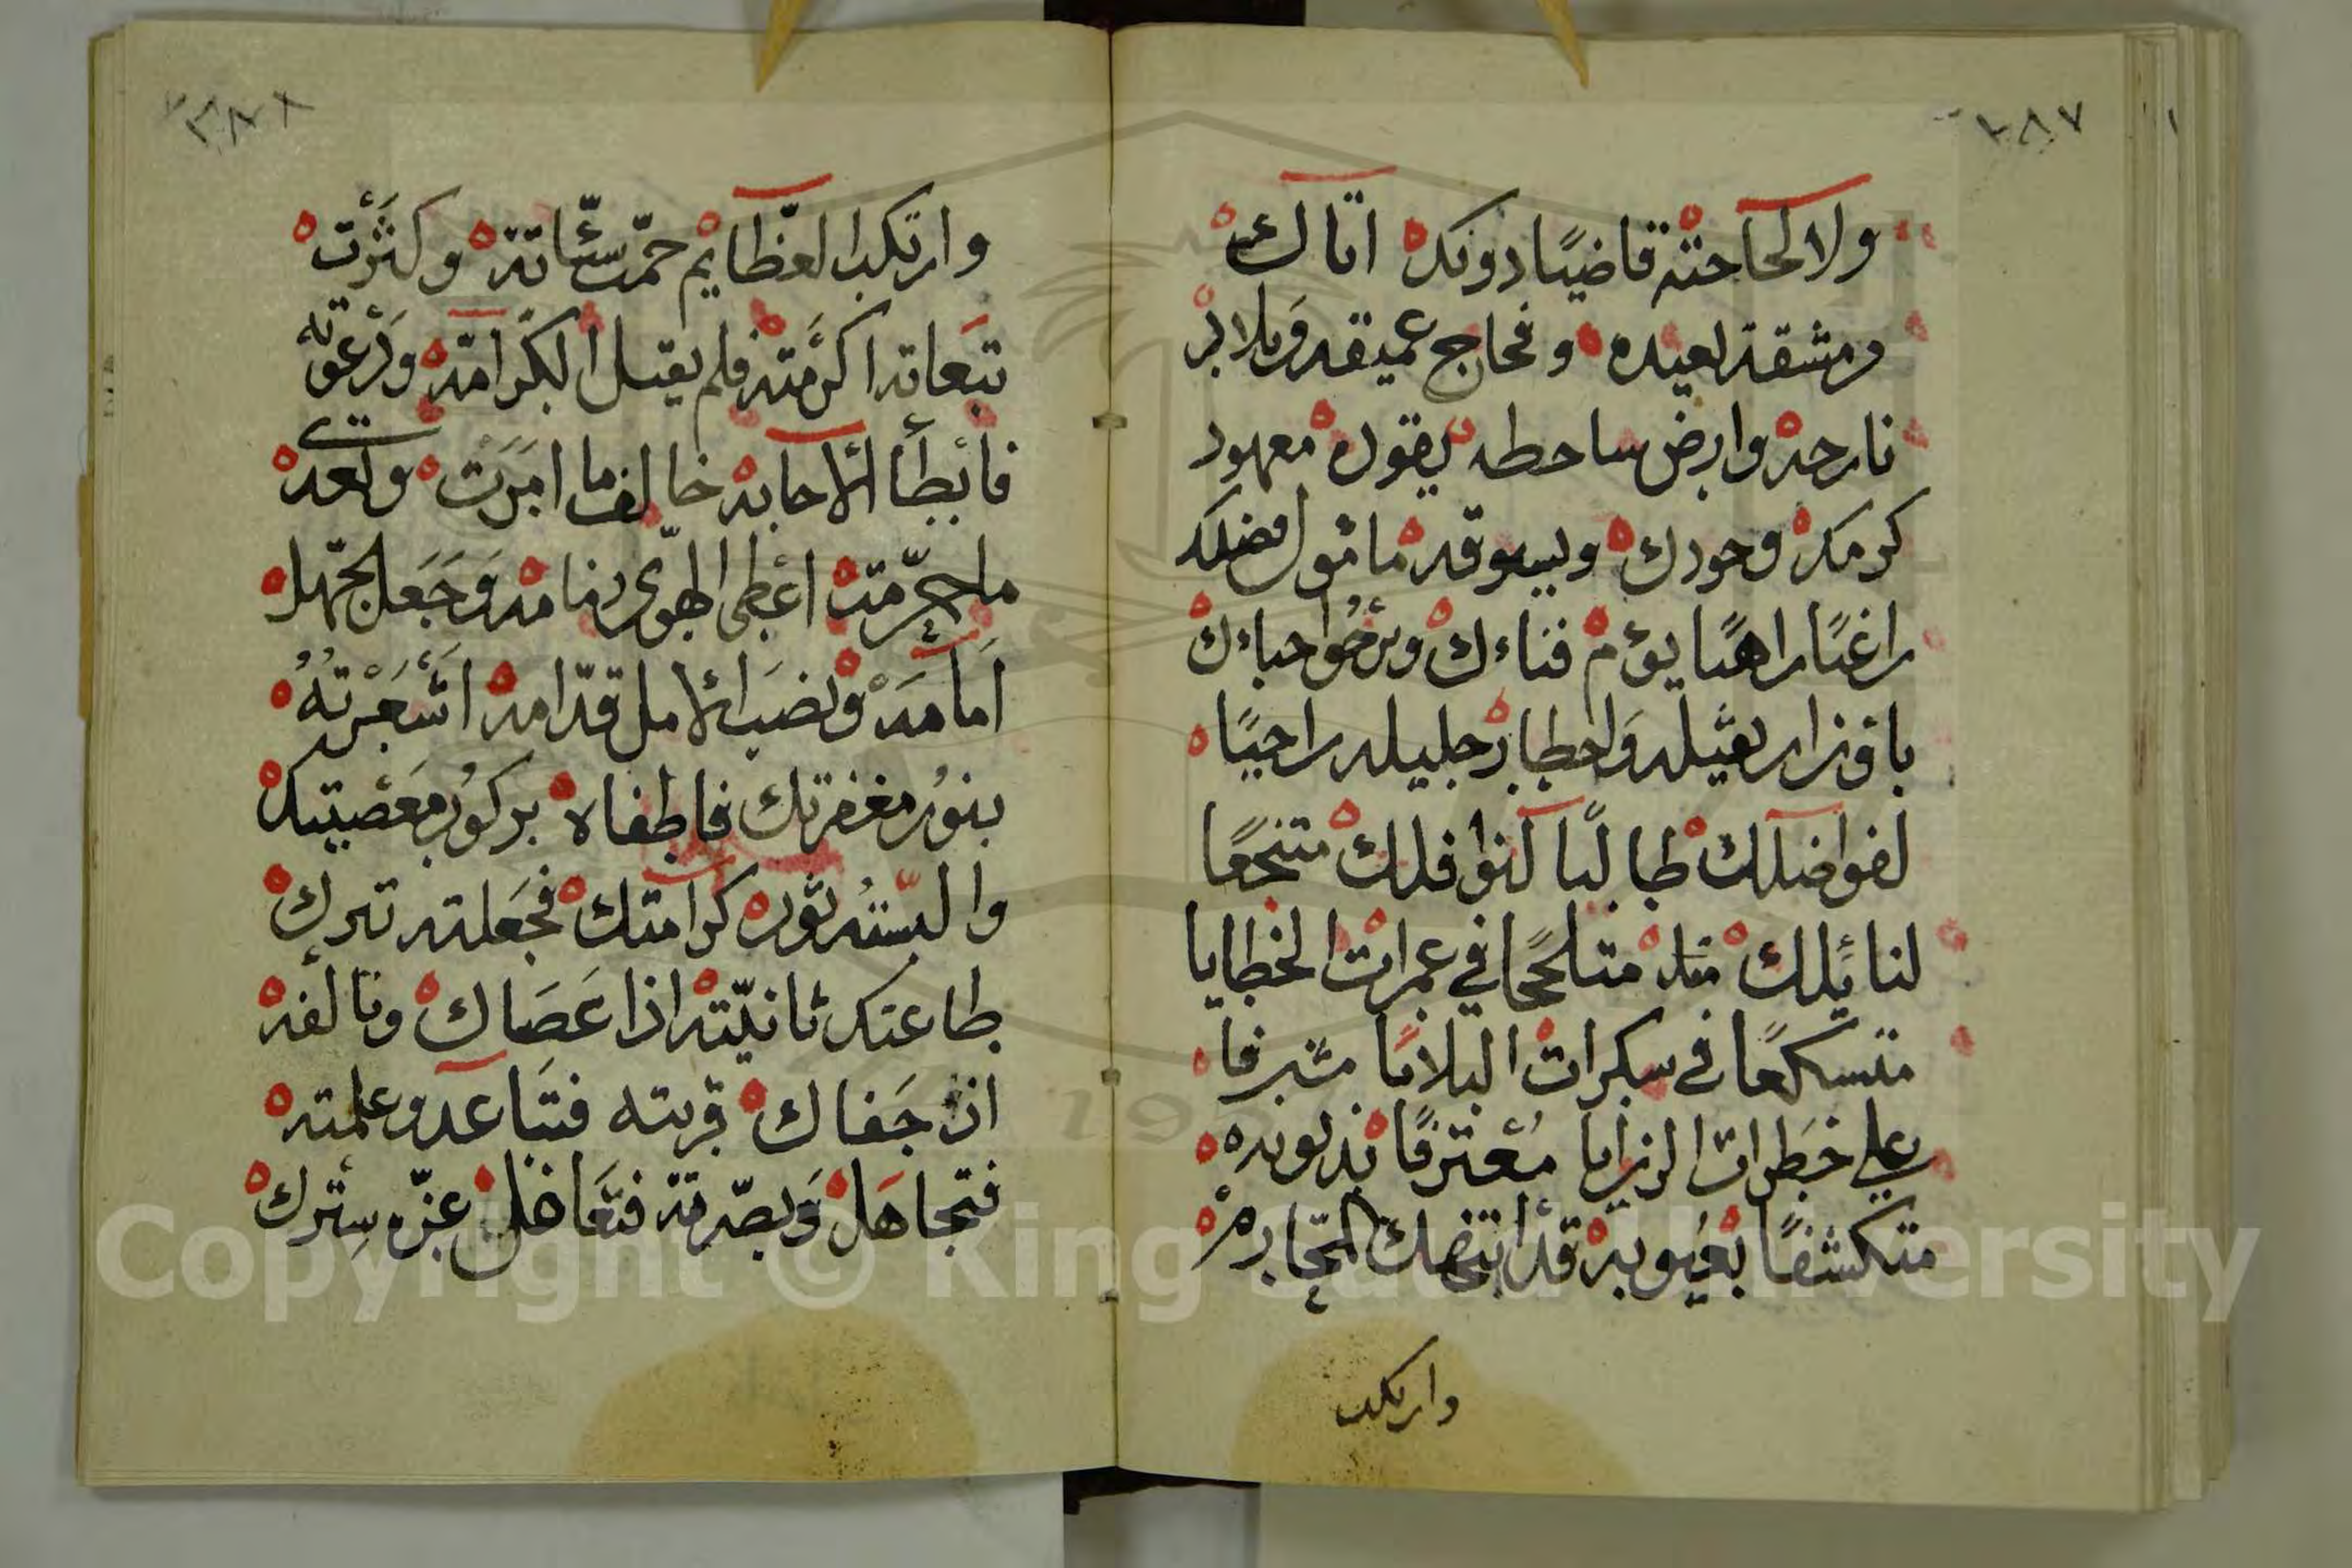 ٢٨٧
ولا لحاجته قاضيًا دونك اتاك
من مشقة بعيده وفجاج عميقه وبلاد
نازحه وارض ساحطه يقوده معهود
كرمك وجودك ويسوقه مأمول فضلك
راغبًا راهبًا يؤم فناءك ويرجوا حباءك
باوزار ثقيله واخطار جليله راجيًا
لفواضلك طالبًا لنوافلك منتجعًا
لنائلك متلججًا في غمرات الخطايا
متسكعًا في سكرات البلايا مشرفا
على خطرات الرزايا معترفًا بذنوبه
متكشفًا بعيوبه قد انتهك المحارم
وارتكب
٢٨٨
وارتكب العظايم جمّت سيّئاته وكثرت
تبعاته اكرمته فلم يقبل الكرامه ودعوته
فابطأ الاجابه خالف ما امرت وتعدى
ما حرّمت اعطى الهوى زمامه وجعل الجهل
امامه ونصب الامل قدّامه اشعرته
بنور مغفرتك فاطفاه بركوب معصيتك
والبسته ثوب كرامتك فجعلته ترك
طاعتك تانيّته اذا عصاك وتالفه
اذ جفاك قربته فتباعد وعلمته
فتجاهل وبصّرته فتغافل عزّه سترك
Copyright © King Saud University
195